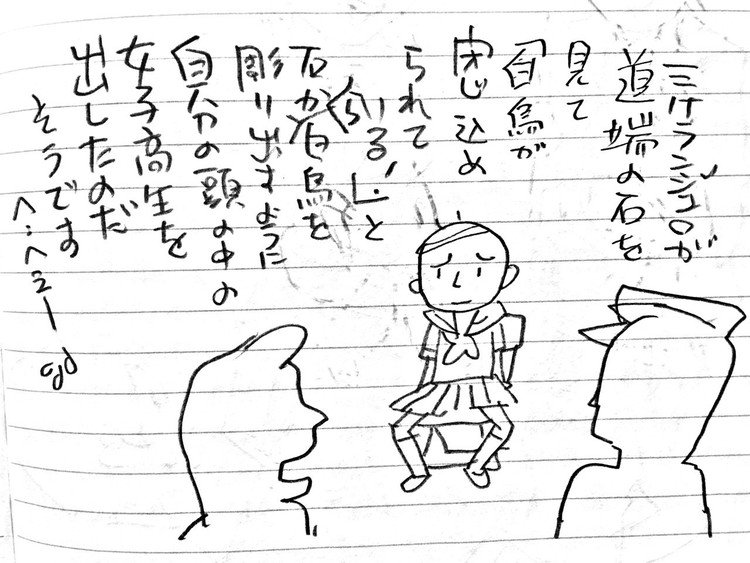 ミケランジェロが
道端の石を
見て
「白鳥が
閉じ込め
られて
いる！」と
石から白鳥を
彫り出すように
自分の頭の中の
女子高生を
出したのだ
そうです